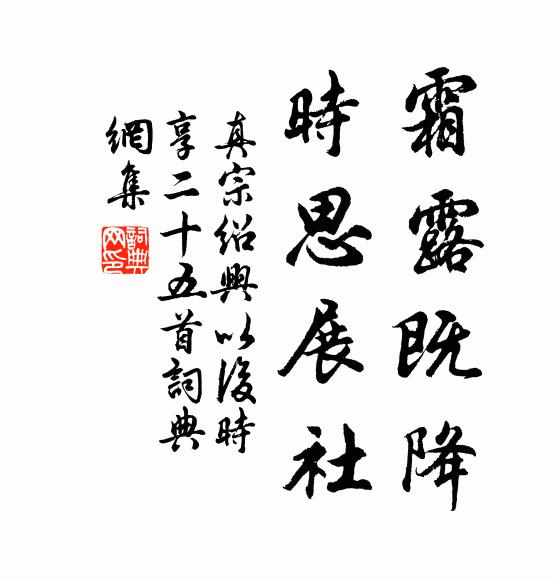 霜露既降
時思展社
真宗紹興以後時
享二十五首詞典
網集
詞典網印